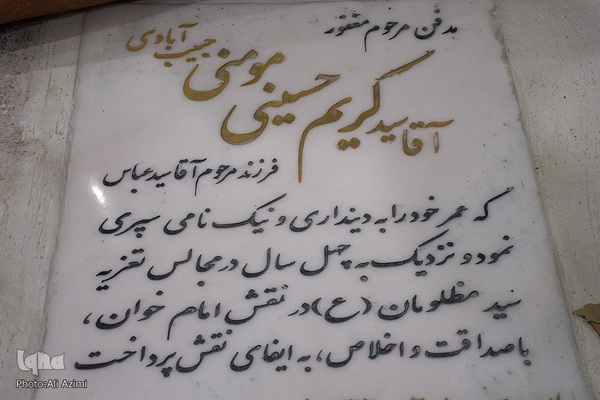 مدفن مرحوم مغفور
آقا سید کریم حسینی مومنی حبیب آبادی
فرزند مرحوم آقا سید عباس
که عمر خود را به دینداری و نیک نامی سپری
نمود و نزدیک به چهل سال در مجالس تعزیه
سید مظلومان (ع) در نقش امام خوان،
با صداقت و اخلاص، به ایفای نقش پرداخت
iqna
Photo:Ali Azimi